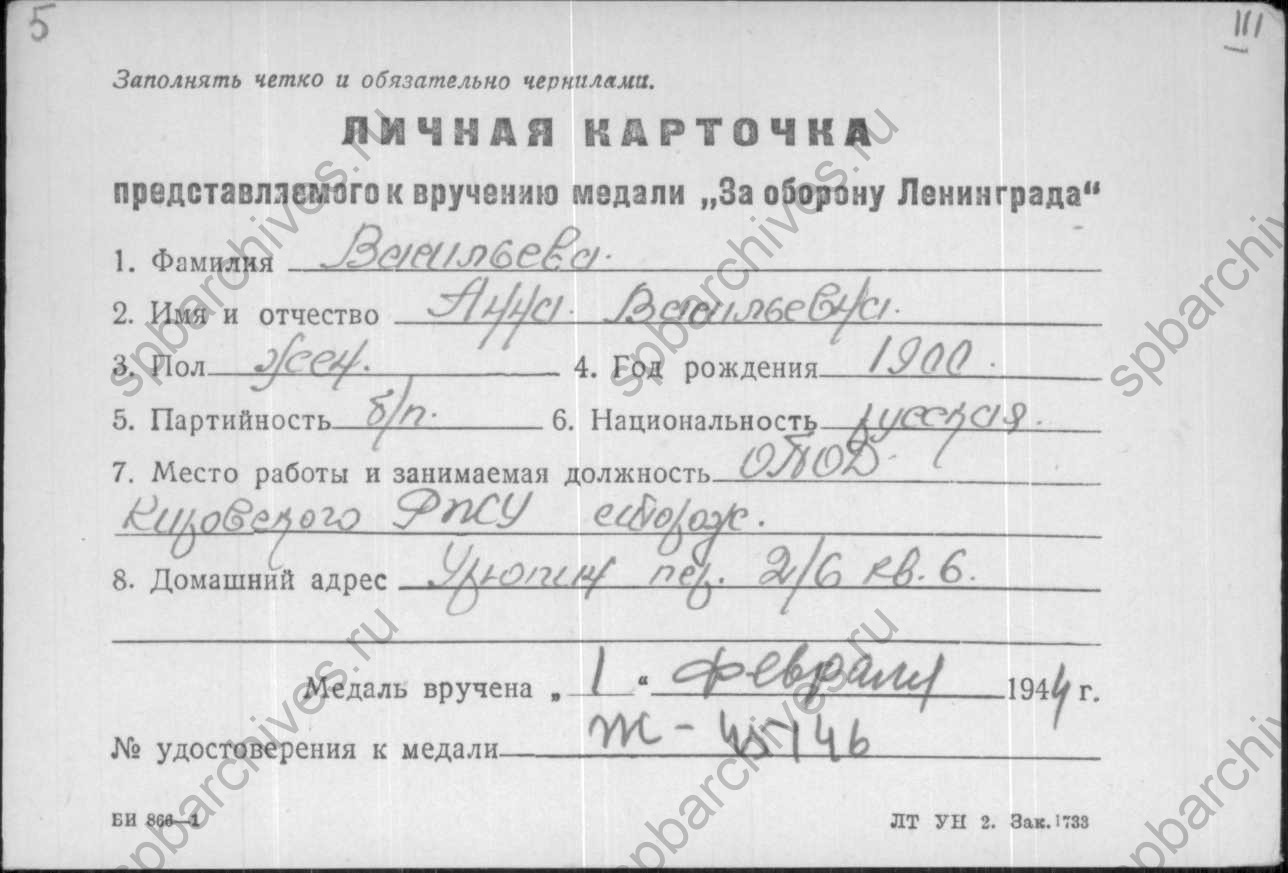 5 III
Заполнять четко и обязательно чернилами.
ЛИЧНАЯ КАРТОЧКА
представляемого к вручению медали „За оборону Ленинграда“
1. Фамилия Васильева.
2. Имя и отчество Анна Васильевна.
3. Пол жен. 4. Год рождения 1900.
5. Партийность б/п. 6. Национальность русская.
7. Место работы и занимаемая должность
Кировского РПСУ сторож.
8. Домашний адрес Урюпин пер. 2/6 кв. 6.
Медаль вручена „ 1 “ февраля 1944 г.
№ удостоверения к медали Ж-45146
БИ 866—1 ЛТ УН 2. Зак. 1733
spbarchives.ru